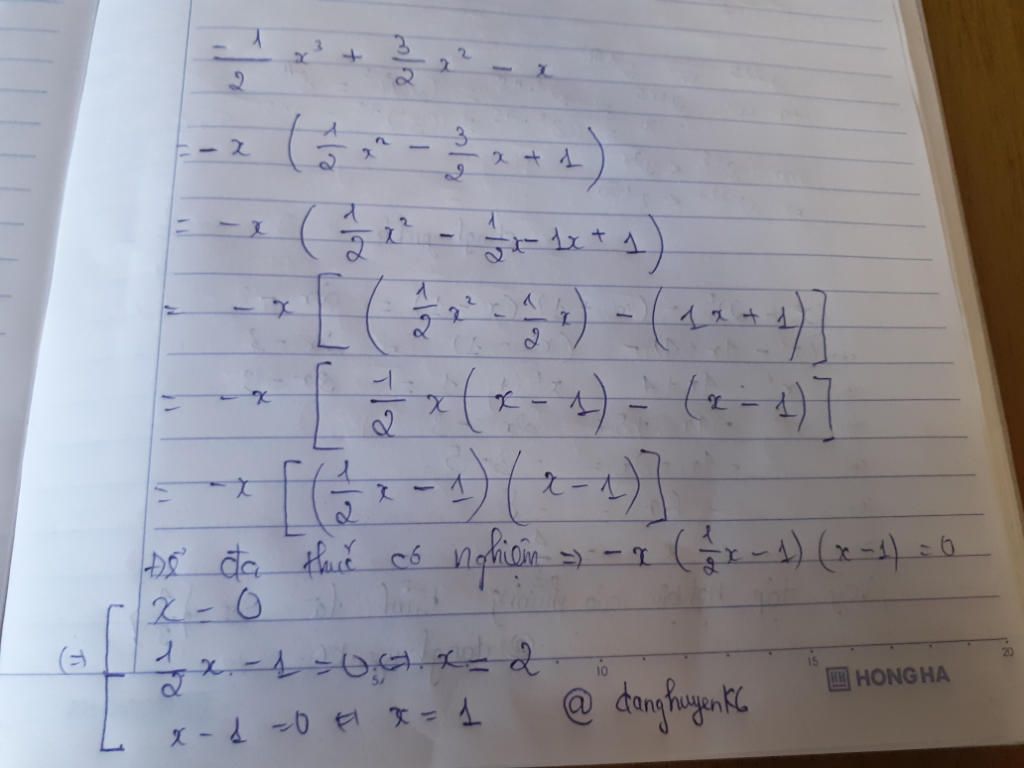 -1/2 x³ + 3/2 x² - x
= - x (1/2 x² - 3/2 x + 1)
= - x (1/2 x² - 1/2 x - 1x + 1)
= - x [(1/2 x² - 1/2 x) - (1x + 1)]
= - x [-1/2 x (x - 1) - (x - 1)]
= - x [(1/2 x - 1) (x - 1)]
Để đa thức có nghiệm => - x (1/2 x - 1) (x - 1) = 0
x = 0
(=) [ 1/2 x - 1 = 0 (=) x = 2
x - 1 = 0 (=) x = 1
@ danghuyenk6
5 10 15 20
HH HONG HA